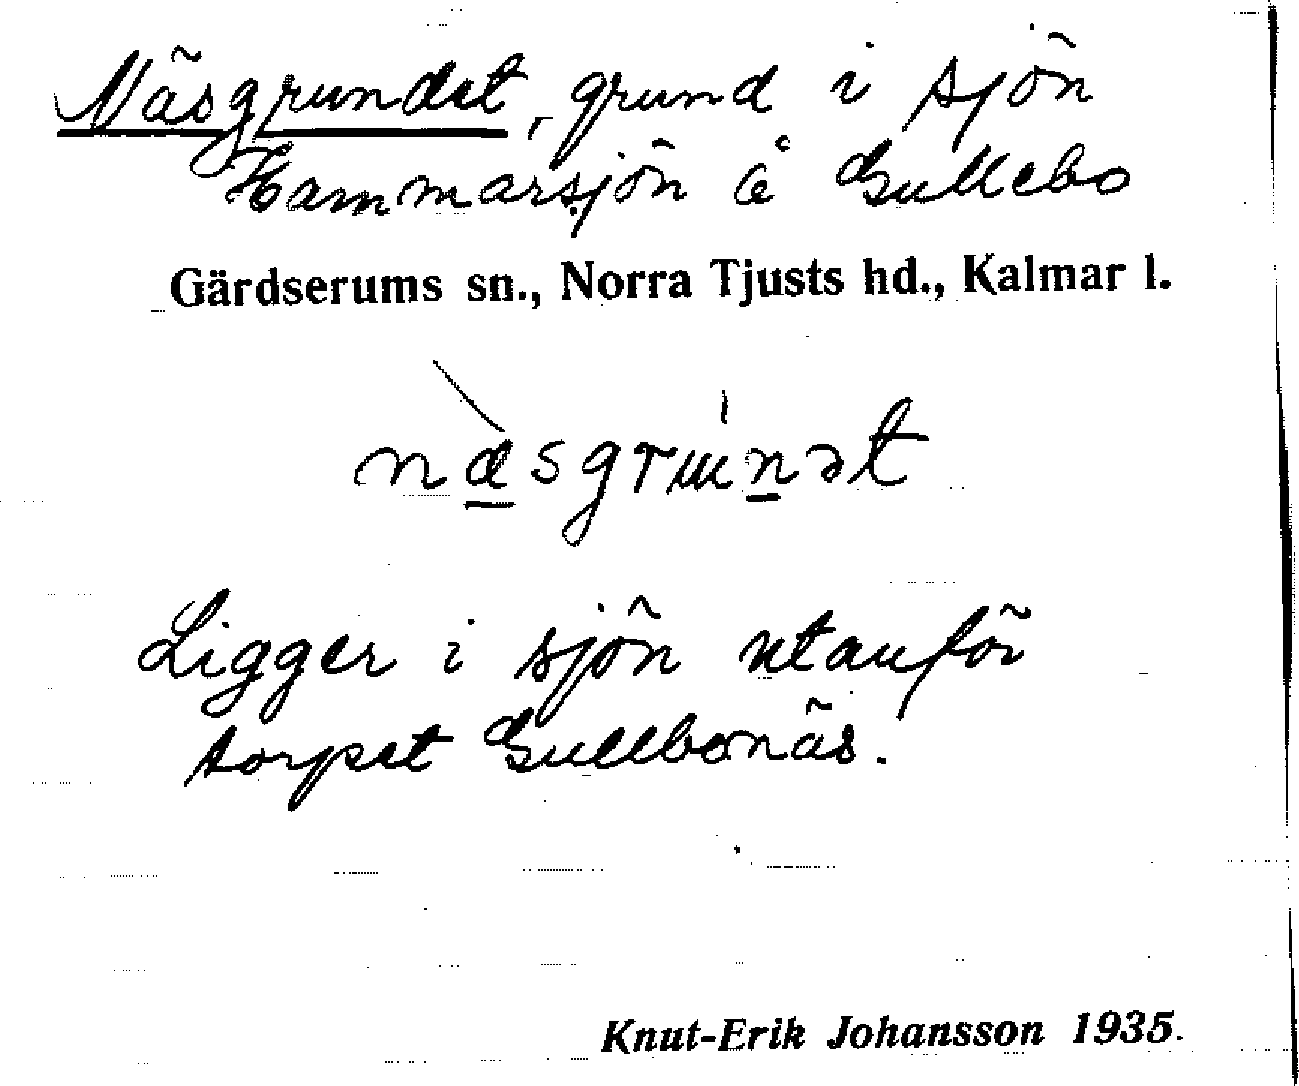 Näsgrundet, grund i sjön
Hammarsjön å Gullebo
Gärdserums sn., Norra Tjusts hd., Kalmar l.
næsgrunət
Ligger i sjön utanför
torpet Gullbonäs.
Knut-Erik Johansson 1935.